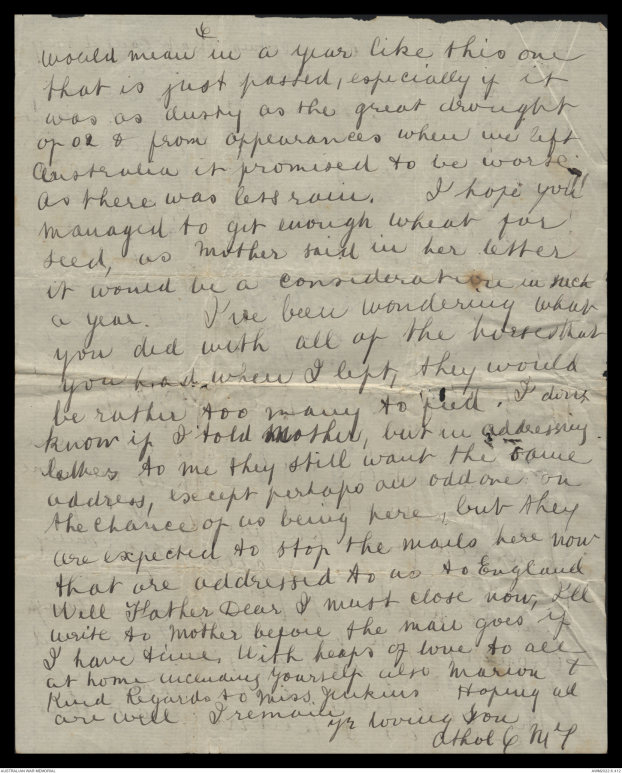 6
would mean in a year like this one
that is just passed, especially if it
was as dusty as the great drought
of 02 & from appearances when we left
Australia it promised to be worse
as there was less rain. I hope you
managed to get enough wheat for
seed, as Mother said in her letter
it would be a consideration in such
a year. I've been wondering what
you did with all of the horses that
you had when I left, they would
be rather too many to feed. I dont
know if I told Mother, but in addressing
letters to me they still want the same
address, except perhaps an odd one on
the chance of us being here, but they
are expected to stop the mails here now
that are addressed to us to England
Well Father Dear I must close now, I'll
write to Mother before the mail goes if
I have time. With heaps of love to all
at home including yourself also Marion &
Kind Regards to Miss Jenkins Hoping all
are well I remain
yr loving Son
Athol C Mc
AUSTRALIAN WAR MEMORIAL